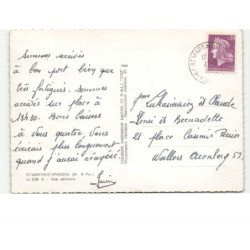 Sommes arrivés
à bon port bien que
très fatigués. Sommes
arrivés sur place à
13h30. Bons baisers
à vous quatre. Vous
écrirai plus longuement
quand j'aurai
ST-MARTIN-D'ARROSSA
Vue aérienne
et Claude
René et Bernadette
21 place Casimir Perier
Wallers Arenberg 59